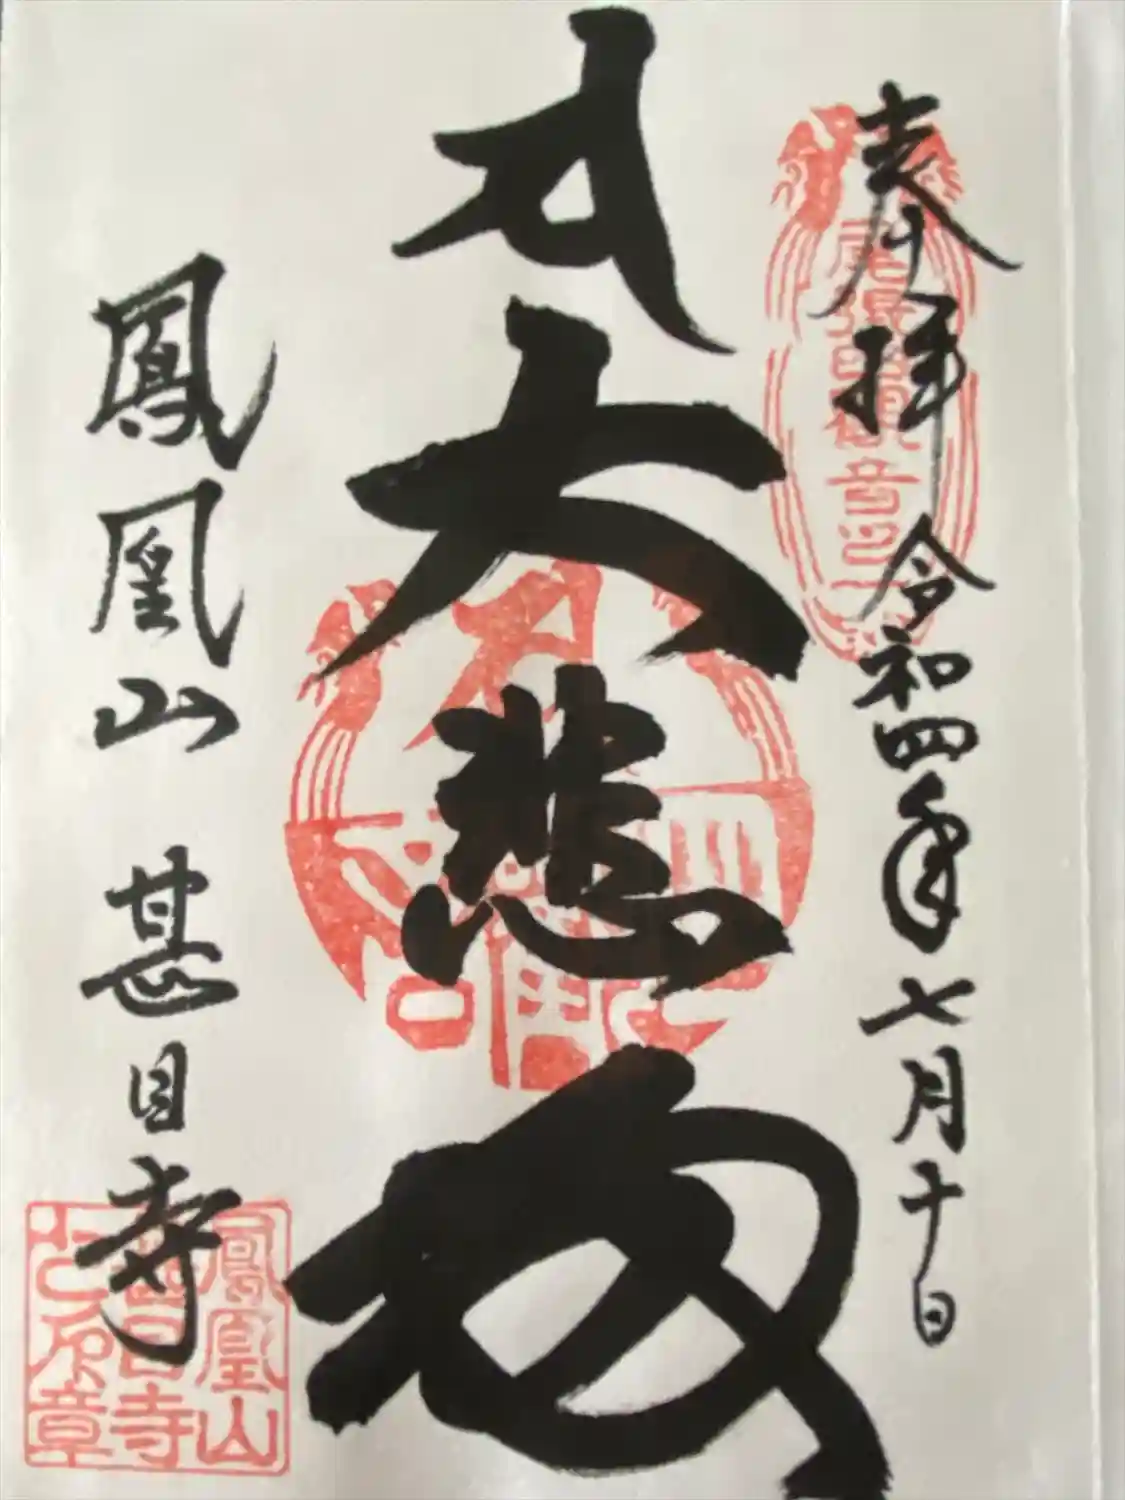 奉拝 令和四年七月十日
尾張四観音
大悲殿
鳳凰山 甚目寺
鳳凰山
甚目寺
之印章